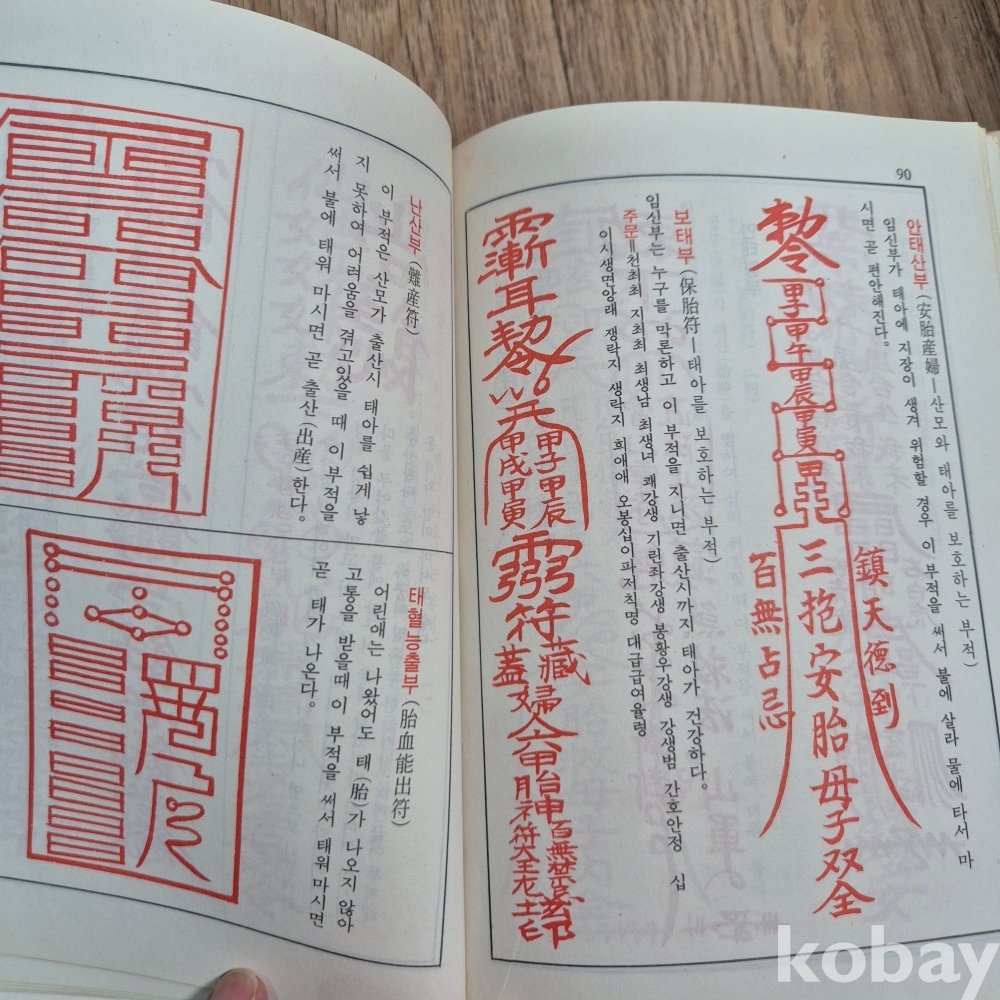 90
안태산부 (安胎産婦—산모와 태아를 보호하는 부적)
임신부가 태아에 지장이 생겨 위험할 경우 이 부적을 써서 불에 살라 물에 타서 마
시면 곧 편안해진다.
鎮天德到
甲子
甲午
甲辰
甲寅
三抱安胎母子双全
百無占忌
보태부 (保胎符—태아를 보호하는 부적)
임신부는 누구를 막론하고 이 부적을 지니면 출산시까지 태아가 건강하다.
주문=천최최 지최최 최생남 최생녀 쾌강생 기린좌강생 봉황우강생 강생범 간호안정 십
이시생면앙래 쟁락지 생락지 희애애 오봉십이파저칙명 대급급여율령
甲子甲辰
甲戌甲寅
符
난산부 (難産符)
이 부적은 산모가 출산시 태아를 쉽게 낳
지 못하여 어려움을 겪고있을 때 이 부적을
써서 불에 태워 마시면 곧 출산(出産)한다。
태혈능출부 (胎血能出符)
어린애는 나왔어도 태(胎)가 나오지 않아
고통을 받을때 이 부적을 써서 태워마시면
곧 태가 나온다。
kobay